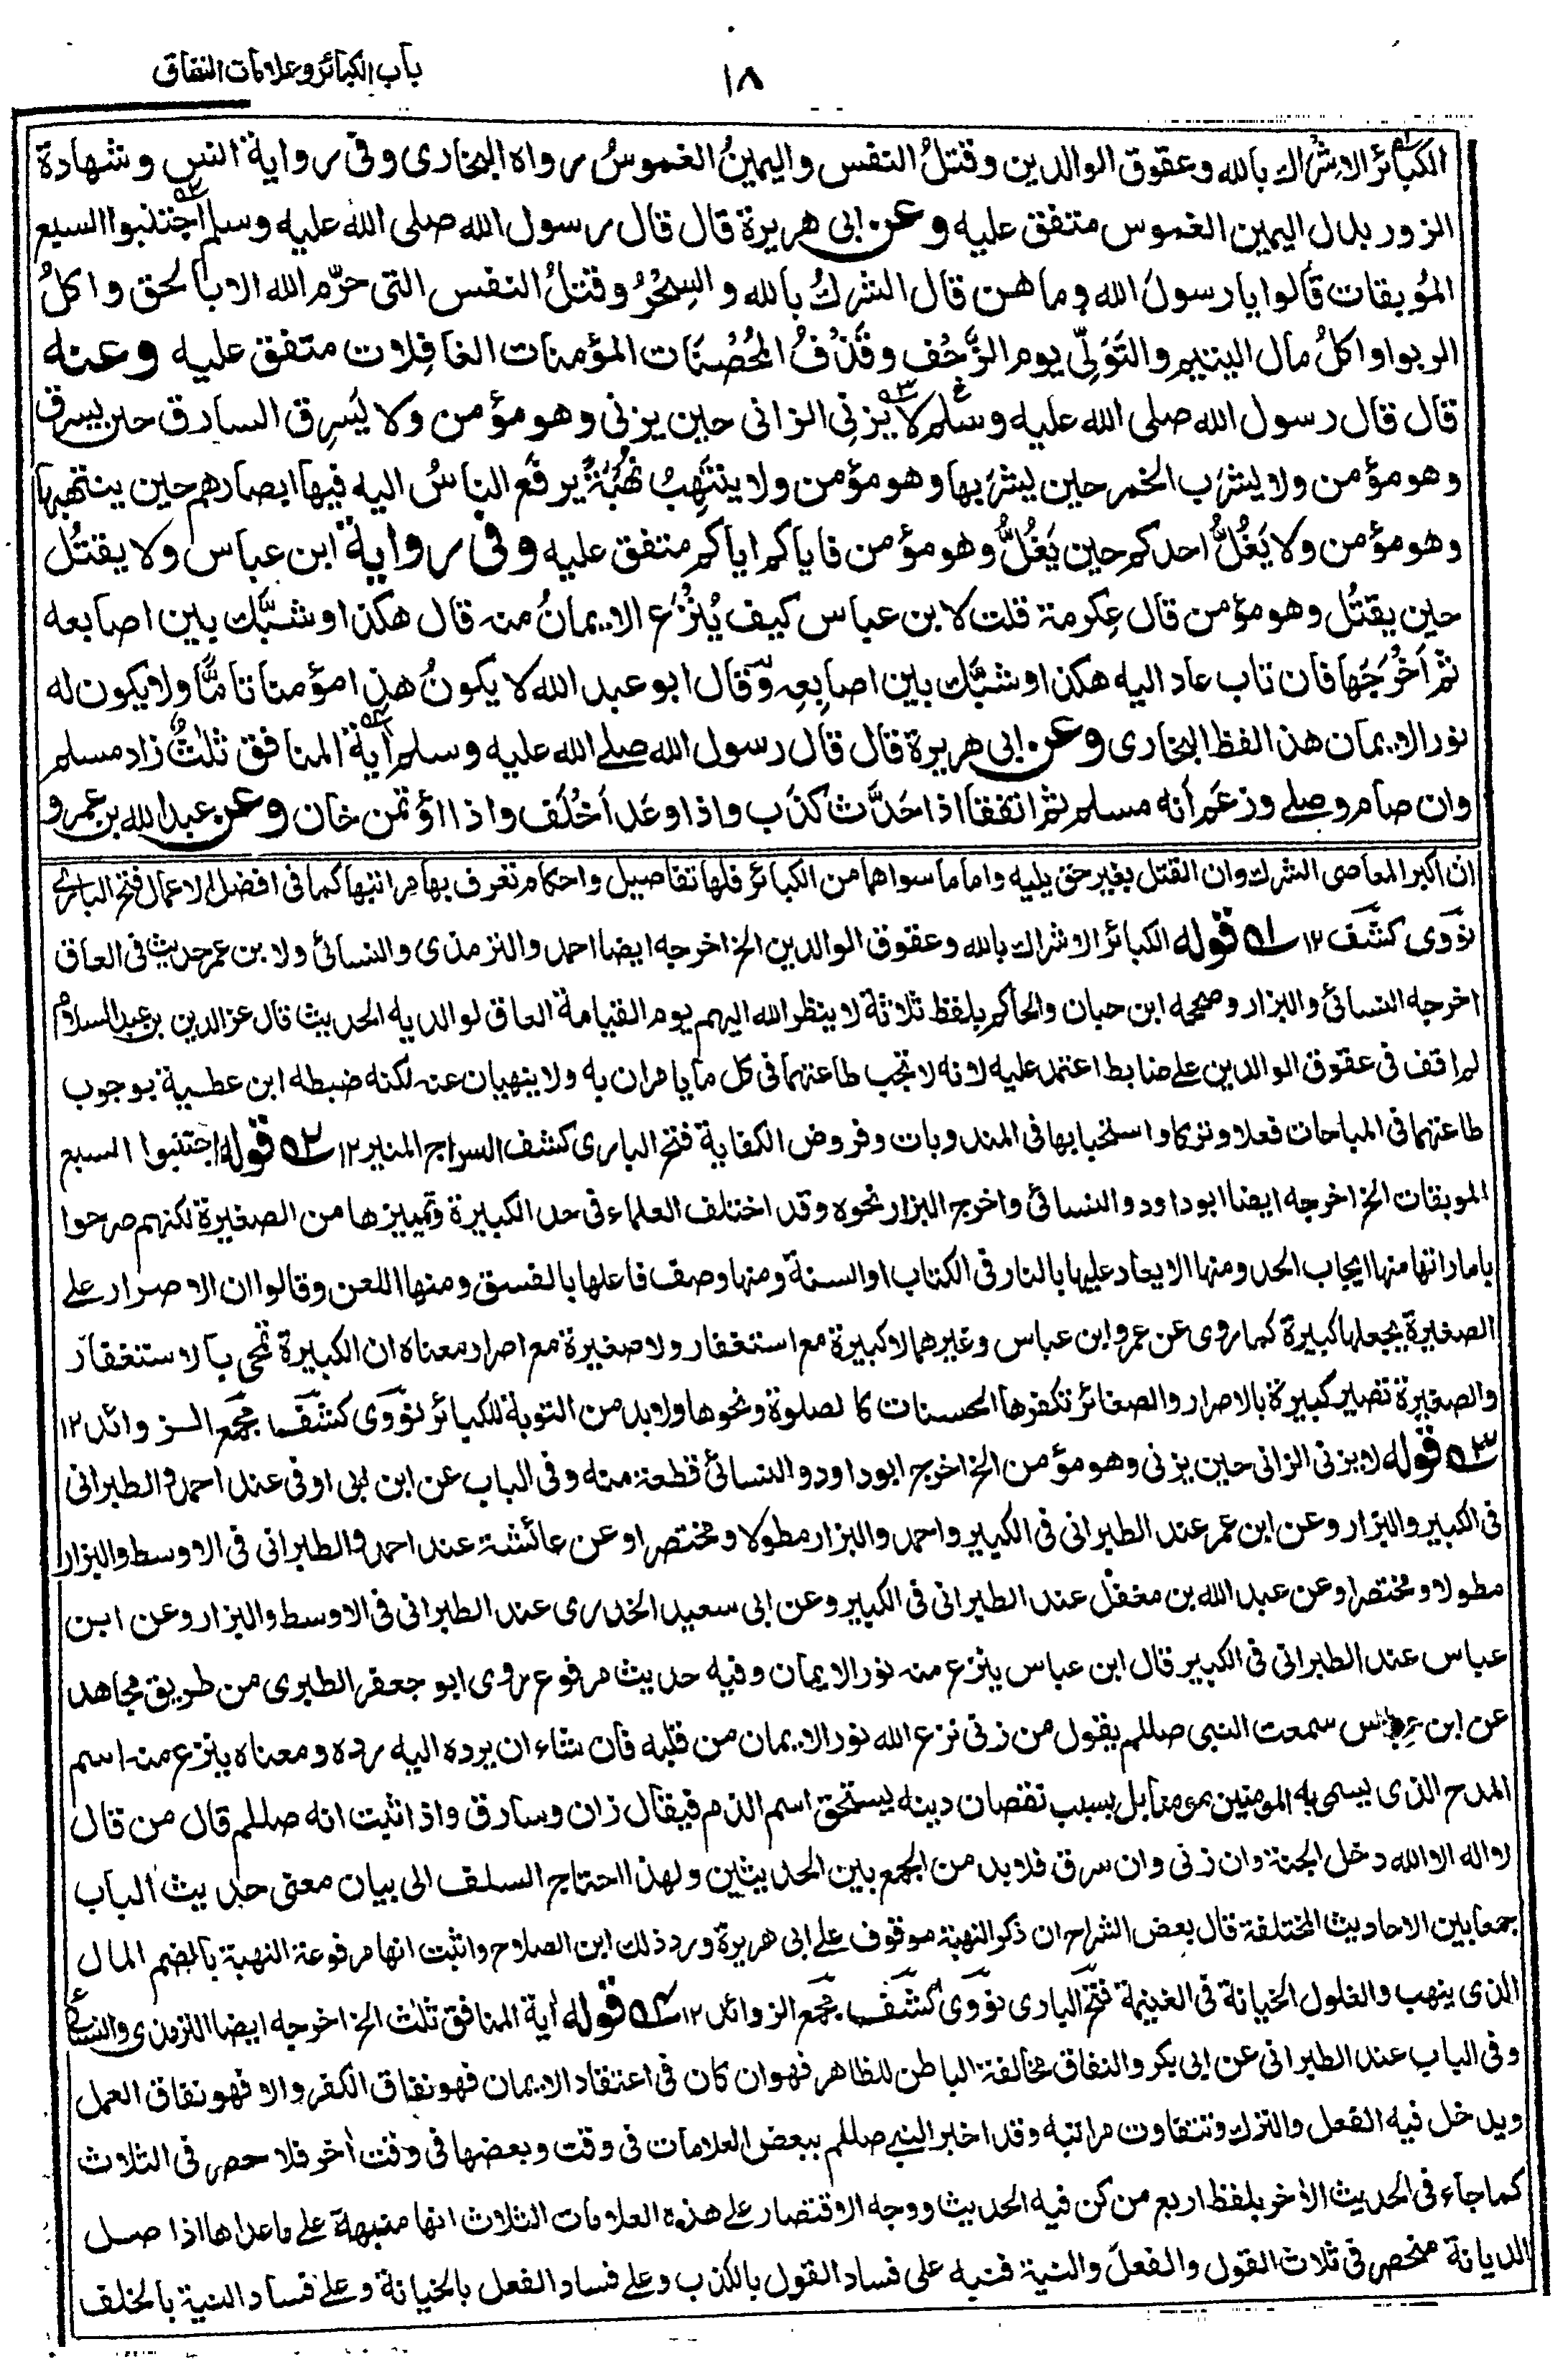 باب الكبائر وعلامات النفاق
١٨
الكبائر الاشراك بالله وعقوق الوالدين وقتلُ النفس واليمينُ الغموسُ رواه البخارى وفى رواية انس وشهادة
الزور بدل اليمين الغموس متفق عليه وعن ابى هريرة قال قال رسول الله صلى الله عليه وسلم اجتنبوا السبع
المُوبقات قالوا يا رسولَ الله وما هن قال الشركُ بالله والسِحْرُ وقتلُ النفس التى حرّم الله الا بالحق واكلُ
الربوا واكلُ مال اليتيم والتَوَلِّى يوم الزَّحْف وقَذْفُ المُحْصَنَات المؤمنات الغافِلات متفق عليه وعنه
قال قال رسول الله صلى الله عليه وسلم لا يَزْنِى الزانى حين يزنى وهو مؤمن ولا يَسرِق السارق حين يسرق
وهو مؤمن ولا يشرَب الخمر حين يشرَبها وهو مؤمن ولا ينتَهِبُ نُهْبَةً يرفَع الناسُ اليه فيها ابصارهم حين ينتهبها
وهو مؤمن ولا يَغُلُّ احدكم حين يَغُلُّ وهو مؤمن فاياكم اياكم متفق عليه وفى رواية ابن عباس ولا يقتُل
حين يقتُل وهو مؤمن قال عِكرمة قلت لابن عباس كيف يُنْزَع الايمانُ منه قال هكذا وشبَّك بين اصابعه
ثم اَخْرَجَها فان تاب عاد اليه هكذا وشبَّك بين اصابِعِه وقال ابو عبد الله لا يكونُ هذا مؤمنا تامًّا ولا يكون له
نور الايمان هذا لفظ البخارى وعن ابى هريرة قال قال رسول الله صلے الله عليه وسلم اٰية المنافق ثلٰثٌ زاد مسلم
وان صام وصلے وزعَم أنه مسلم ثم اتفقا اذا حَدَّث كذَب واذا وعَد اَخْلَف واذا اؤتمن خان وعن عبد الله بن عمرو
ان اكبر المعاصى الشرك وان القتل بغير حق يليه واما ما سواهما من الكبائر فلها تفاصيل واحكام تعرف بها مراتبها كما فى افضل الاعمال فتح البارے
نووى كشف ١٢ ٥١ قوله الكبائر الاشراك بالله وعقوق الوالدين الخ اخرجه ايضا احمد والترمذى والنسائى ولابن عمر حديث فى العاق
اخرجه النسائى والبزار وصححه ابن حبان والحاكم بلفظ ثلاثة لا ينظر الله اليهم يوم القيامة العاق لوالديه الحديث قال عز الدين بن عبد السلام
لم اقف فى عقوق الوالدين علے ضابط اعتمد عليه لانه لا تجب طاعتهما فى كل ما يامران به ولا ينهيان عنه لكنه ضبطه ابن عطية بوجوب
طاعتهما فى المباحات فعلا وتركا واستحبابها فى المندوبات وفروض الكفاية فتح البارى كشف السراج المنير ١٢ ٥٢ قوله اجتنبوا السبع
الموبقات الخ اخرجه ايضا ابو داود والنسائى واخرج البزار نحوه وقد اختلف العلماء فى حد الكبيرة وتمييزها من الصغيرة لكنهم صرحوا
بامارتها منها ايجاب الحد ومنها الايعاد عليها بالنار فى الكتاب او السنة ومنها وصف فاعلها بالفسق ومنها اللعن وقالوا ان الاصرار علے
الصغيرة يجعلها كبيرة كما روى عن عمر وابن عباس وغيرهما لا كبيرة مع استغفار ولا صغيرة مع اصرار معناه ان الكبيرة تمحى بالاستغفار
والصغيرة تصير كبيرة بالاصرار والصغائر تكفرها الحسنات كا لصلوة ونحوها ولا بد من التوبة للكبائر نووى كشف مجمع الزوائد ١٢
٥٣ قوله لا يزنى الزانى حين يزنى وهو مؤمن الخ اخرج ابو داود والنسائى قطعة منه وفى الباب عن ابن ابى اوفى عند احمد والطبرانى
فى الكبير والبزار وعن ابن عمر عند الطبرانى فى الكبير واحمد والبزار مطولا ومختصرا وعن عائشة عند احمد والطبرانى فى الاوسط والبزار
مطولا ومختصرا وعن عبد الله بن مغفل عند الطبرانى فى الكبير وعن ابى سعيد الخدرى عند الطبرانى فى الاوسط والبزار وعن ابن
عباس عند الطبرانى فى الكبير قال ابن عباس ينزع منه نور الايمان وفيه حديث مرفوع روى ابو جعفر الطبرى من طريق مجاهد
عن ابن عباس سمعت النبى صللم يقول من زنى نزع الله نور الايمان من قلبه فان شاء ان يرده اليه رده ومعناه ينزع منه اسم
المدح الذى يسمى به المومنين مومنا بل بسبب نقصان دينه يستحق اسم الذم فيقال زان وسارق واذا ثبت انه صللم قال من قال
لا اله الا الله دخل الجنة وان زنى وان سرق فلا بد من الجمع بين الحديثين ولهذا احتاج السلف الى بيان معنى حديث الباب
جمعا بين الاحاديث المختلفة قال بعض الشراح ان ذكر النهبة موقوف علے ابى هريرة ورد ذلك ابن الصلاح واثبت انها مرفوعة النهبة بالضم المال
الذى ينهب والغلول الخيانة فى الغنيمة فتح البارى نووى كشف مجمع الزوائد ١٢ ٥٤ قوله اٰية المنافق ثلٰث الخ اخرجه ايضا الترمذى والنسائے
وفى الباب عند الطبرانى عن ابى بكر والنفاق مخالفة الباطن للظاهر فهو ان كان فى اعتقاد الايمان فهو نفاق الكفر والا فهو نفاق العمل
ويدخل فيه الفعل والترك وتتفاوت مراتبه وقد اخبر النبے صللم ببعض العلامات فى وقت وبعضها فى وقت اٰخر فلا حصر فى الثلاث
كما جاء فى الحديث الاٰخر بلفظ اربع من كن فيه الحديث ووجه الاقتصار علے هذه العلامات الثلاث انها منبهة علے ما عداها اذا صل
الديانة منحصر فى ثلاث القول والفعل والنية فنبه على فساد القول بالكذب وعلے فساد الفعل بالخيانة وعلے فساد النية بالخلف